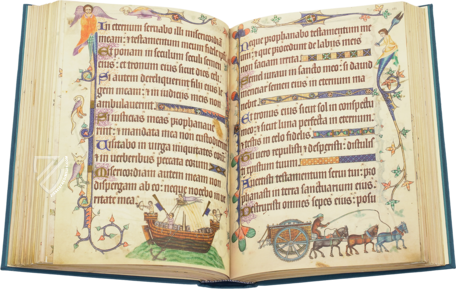 In eternum servabo illi misericordiam
meam: et testamentum meum fidele
Et ponam in seculum seculi semen
eius: et tronum eius sicut dies celi
Si autem dereliquerint filii eius
legem meam: et in iudiciis meis non
ambulaverint
Si iusticias meas prophanaverint
et mandata mea non custodierint
Visitabo in virga iniquitates eorum
et in verberibus peccata eorum
Misericordiam autem meam non
dispergam ab eo: neque nocebo in
veritate mea
Neque prophanabo testamentum me
um: et que procedunt de labiis meis
non faciam irrita
Semel iuravi in sancto meo: si david
mentiar semen eius in eternum ma
nebit
Et tronus eius sicut sol in conspectu
meo: et sicut luna perfecta in eternum
et testis in celo fidelis
Tu vero repulisti et despexisti: distulisti
christum tuum
Avertisti testamentum servi tui: pro
phanasti in terra sanctuarium eius
Destruxisti omnes sepes eius: posu